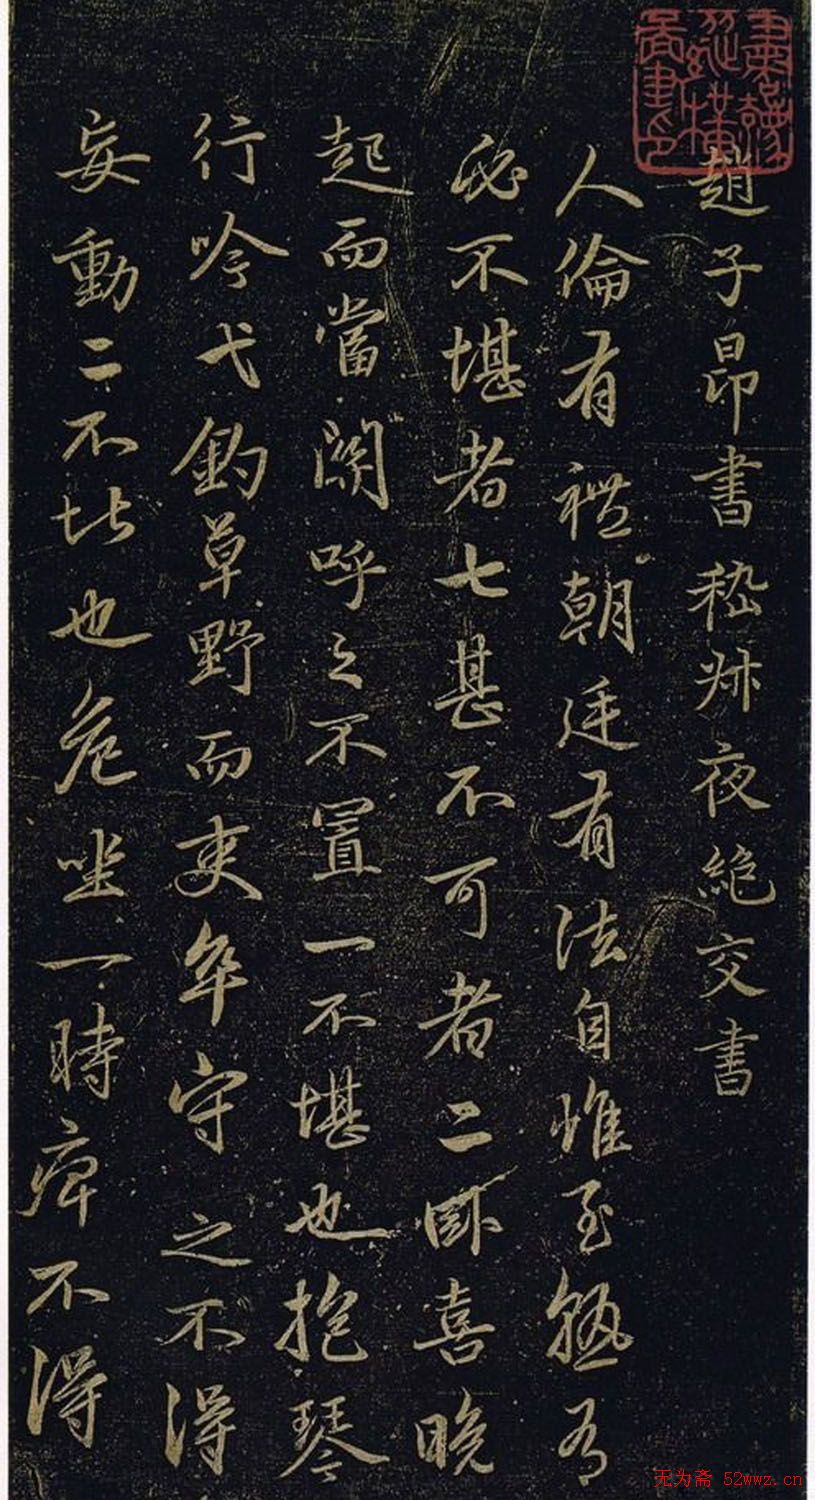 趙子昂書嵇叔夜絶交書
人倫有禮朝廷有法自惟至熟有
必不堪者七甚不可者二卧喜晚
起而當關呼之不置一不堪也抱琴
行吟弋釣草野而吏卒守之不得
妄動二不堪也危坐一時痺不得
无为斋 52wwz.cn